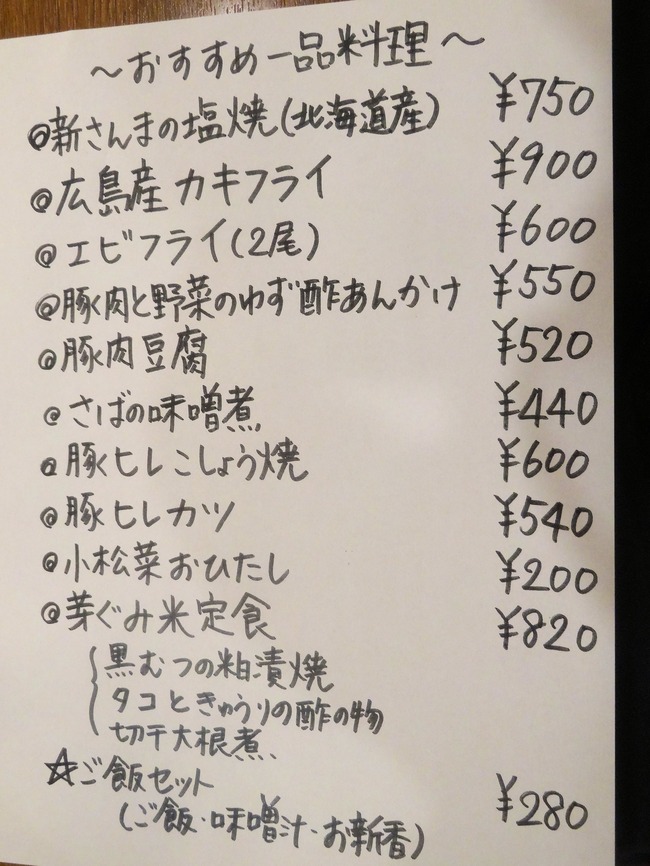 ～おすすめ一品料理～
◎新さんまの塩焼(北海道産) ¥750
◎広島産カキフライ ¥900
◎エビフライ(2尾) ¥600
◎豚肉と野菜のゆず酢あんかけ ¥550
◎豚肉豆腐 ¥520
◎さばの味噌煮 ¥440
◎豚ヒレこしょう焼 ¥600
◎豚ヒレカツ ¥540
◎小松菜おひたし ¥200
◎芽ぐみ米定食 ¥820
黒むつの粕漬焼
タコときゅうりの酢の物
切干大根煮
☆ご飯セット
(ご飯・味噌汁・お新香) ¥280